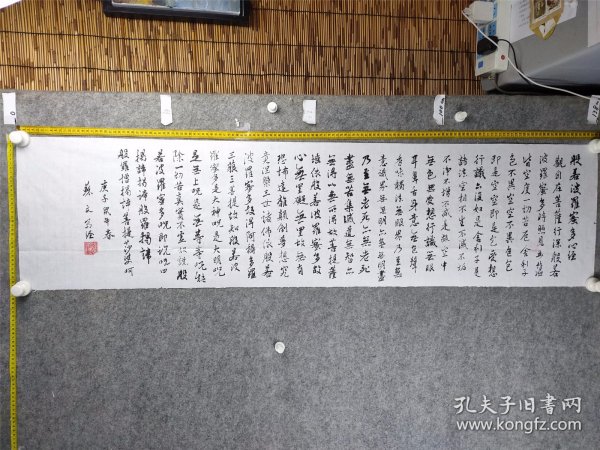 般若波羅蜜多心經
觀自在菩薩行深般若
波羅蜜多時照見五蘊
皆空度一切苦厄舍利子
色不異空空不異色色
即是空空即是色受想
行識亦復如是舍利子是
諸法空相不生不滅不垢
不淨不增不減是故空中
無色無受想行識無眼
耳鼻舌身意無色聲
香味觸法無眼界乃至無
意識界無無明亦無無明盡
乃至無老死亦無老死
盡無苦集滅道無智亦
無得以無所得故菩提薩
埵依般若波羅蜜多故
心無罣礙無罣礙故無有
恐怖遠離顛倒夢想究
竟涅槃三世諸佛依般若
波羅蜜多故得阿耨多羅
三藐三菩提故知般若波
羅蜜多是大神咒是大明咒
是無上咒是無等等咒能
除一切苦真實不虛故說般
若波羅蜜多咒即說咒曰
揭諦揭諦波羅揭諦
般羅僧揭諦菩提薩婆訶
庚子年春
蘇文
孔夫子旧书网
www.kongfz.com